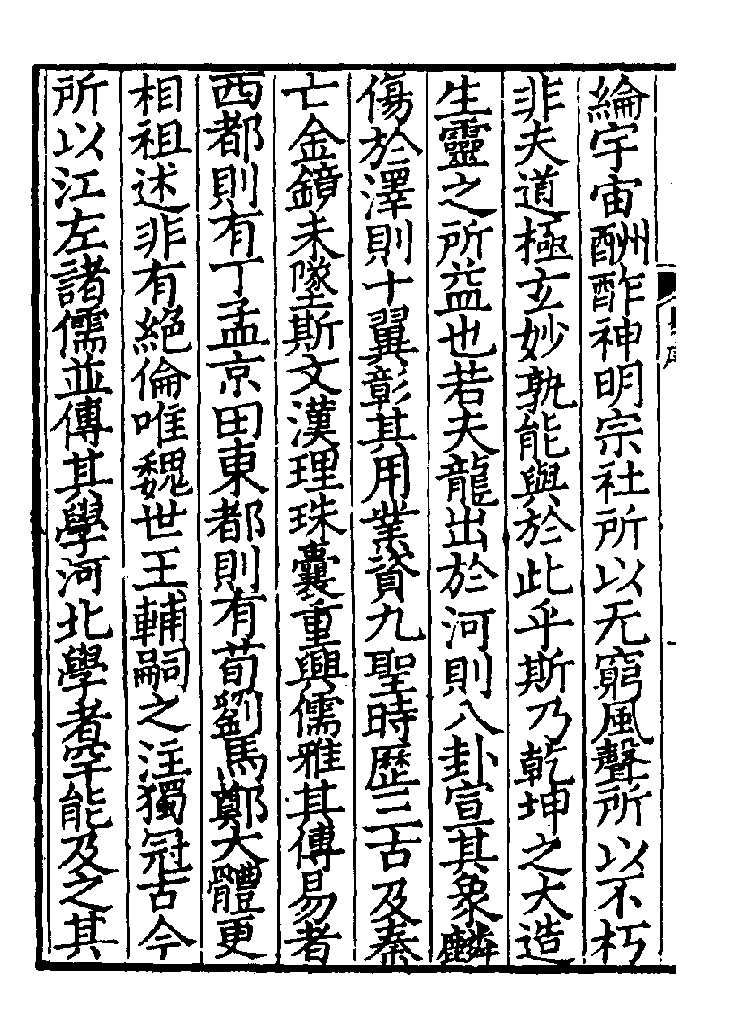 綸宇宙酬酢神明宗社所以无窮風聲所以不朽
非夫道極玄妙孰能與於此乎斯乃乾坤之大造
生靈之所益也若夫龍出於河則八卦宣其象麟
傷於澤則十翼彰其用業資九聖時歷三古及秦
亡金鏡未墜斯文漢理珠囊重興儒雅其傳易者
西都則有丁孟京田東都則有荀劉馬鄭大體更
相祖述非有絕倫唯魏世王輔嗣之注獨冠古今
所以江左諸儒並傳其學河北學者罕能及之其